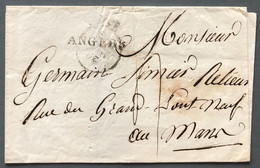 Monsieur
ANGERS
Germain Simier Relieur
Rue du Grand Pont Neuf
au Mans